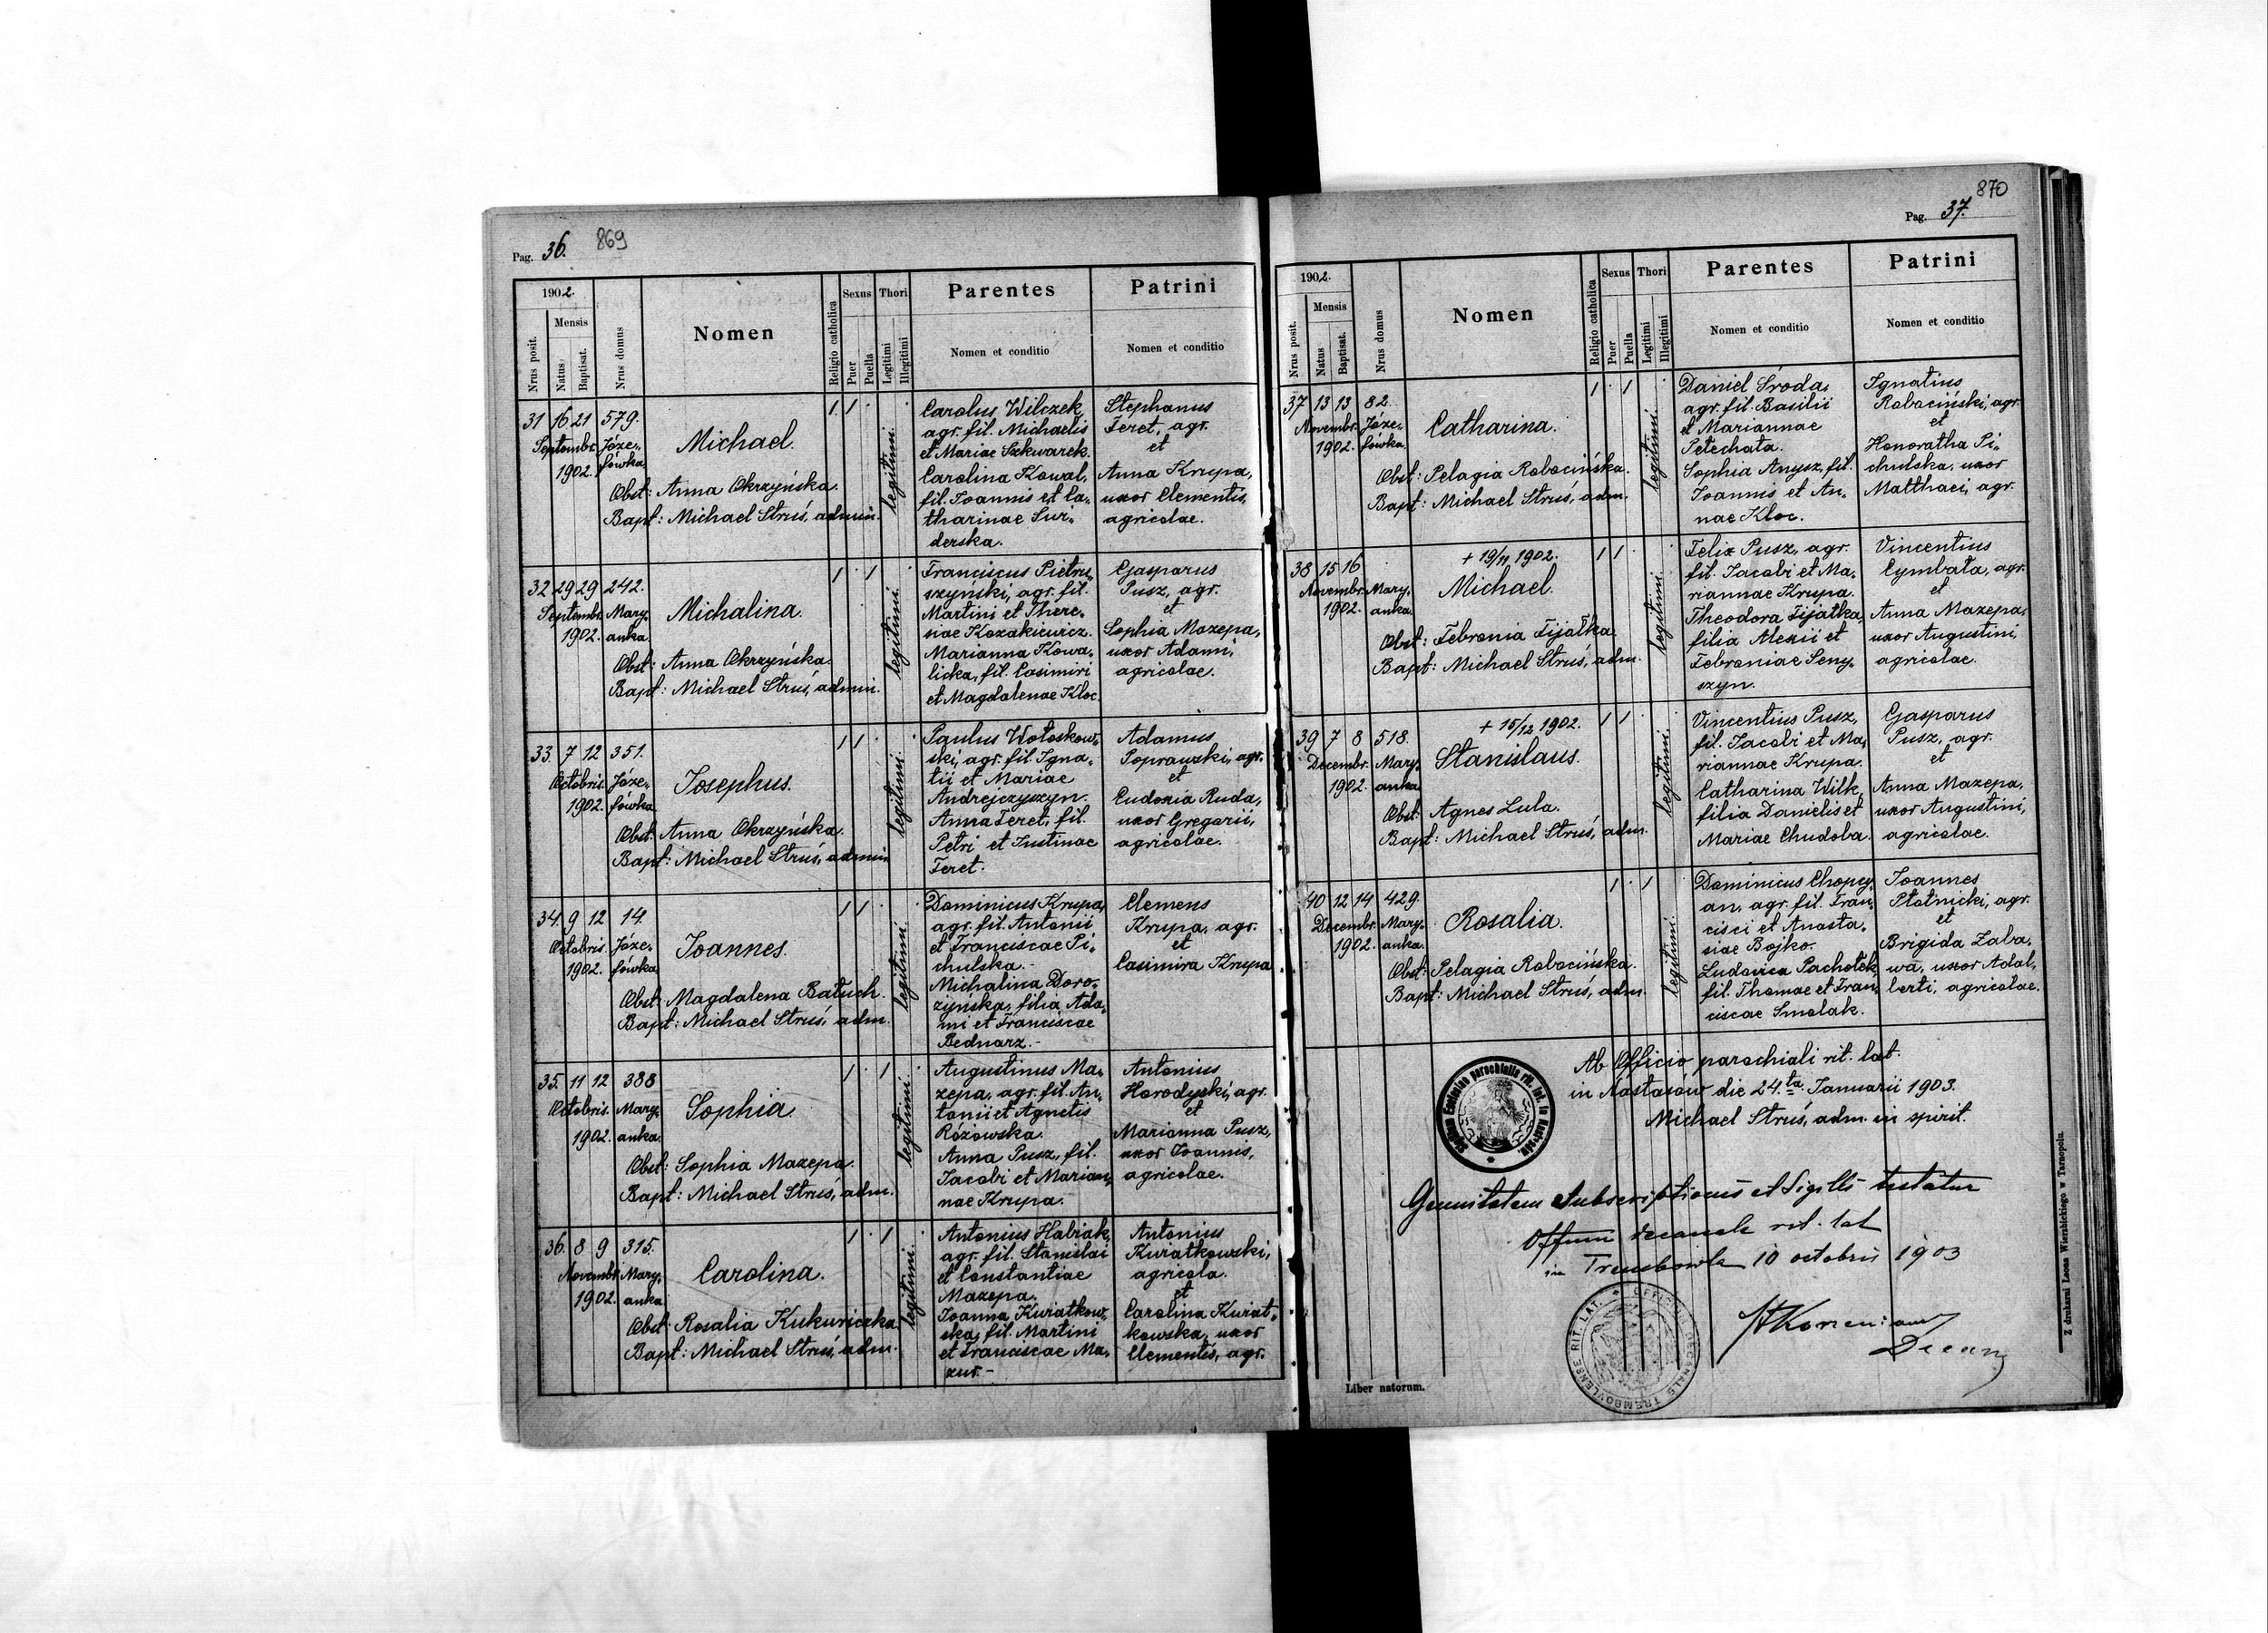 Pag. 36. 869
1902.
Nrus posit.
Mensis
Natus
Baptisat.
Nrus domus
Nomen
Religio catholica
Sexus
Puer
Puella
Thori
Legitimi
Illegitimi
Parentes
Nomen et conditio
Patrini
Nomen et conditio
31 16 21 579.
Septembr. Józe-
1902. fówka
Michael.
Obst: Anna Okrzyńska.
Bapt: Michael Struś, admin.
1 1
legitimi.
Carolus Wilczek,
agr. fil. Michaelis
et Mariae Szkwarek.
Carolina Kowal,
fil. Joannis et Ca-
tharinae Swi-
derska.
Stephanus
Feret, agr.
et
Anna Krupa,
uxor Clementis,
agricolae.
32 29 29 242.
Septembr. Mary-
1902. anka.
Michalina.
Obst: Anna Okrzyńska.
Bapt: Michael Struś, admin.
1 1
legitimi.
Franciscus Pietru-
szyński, agr. fil.
Martini et There-
siae Kozakiewicz.
Marianna Kowa-
licka, fil. Casimiri
et Magdalenae Kloc.
Gasparus
Pusz, agr.
et
Sophia Mazepa,
uxor Adami,
agricolae.
33. 7 12 351.
Octobris. Józe-
1902. fówka
Josephus.
Obst: Anna Okrzyńska.
Bapt: Michael Struś, admin
1 1
legitimi.
Paulus Wołoskow-
ski, agr. fil. Igna-
tii et Mariae
Andrejczyszyn.
Anna Feret, fil.
Petri et Justinae
Feret.
Adamus
Poprawski, agr.
et
Eudoxia Ruda,
uxor Gregorii,
agricolae.
34. 9 12 14.
Octobris. Józe-
1902. fówka
Joannes.
Obst: Magdalena Bałuch.
Bapt: Michael Struś, adm.
1 1
legitimi.
Dominicus Krupa,
agr. fil. Antonii
et Franciscae Pi-
chulska.-
Michalina Doro-
żyńska, filia Ada-
mi et Franciscae
Bednarz.-
Clemens
Krupa, agr.
et
Casimira Krupa
35. 11 12 388
Octobris. Mary-
1902. anka.
Sophia
Obst: Sophia Mazepa.
Bapt: Michael Struś, adm.
1 1
legitimi.
Augustinus Ma-
zepa, agr. fil. An-
tonii et Agnetis
Różowska.
Anna Pusz, fil.
Jacobi et Marian-
nae Krupa.
Antonius
Horodyski, agr.
et
Marianna Pusz,
uxor Joannis,
agricolae.
36. 8 9 315.
Novembr. Mary-
1902. anka
Carolina.
Obst: Rosalia Kukuriczka
Bapt: Michael Struś, adm.
1 1
legitimi.
Antonius Habiak,
agr. fil. Stanislai
et Constantiae
Mazepa.
Joanna Kwiatkow-
ska, fil. Martini
et Franciscae Ma-
zur.-
Antonius
Kwiatkowski,
agricola.
et
Carolina Kwiat-
kowska, uxor
Clementis, agr.
870
Pag. 37.
1902.
Nrus posit.
Mensis
Natus
Baptisat.
Nrus domus
Nomen
Religio catholica
Sexus
Puer
Puella
Thori
Legitimi
Illegitimi
Parentes
Nomen et conditio
Patrini
Nomen et conditio
37 13 13 82.
Novembr. Józe-
1902. fówka.
Catharina.
Obst: Pelagia Robocińska.
Bapt: Michael Struś, adm.
1 1
legitimi.
Daniel Środa,
agr. fil. Basilii
et Mariannae
Petechata.
Sophia Anysz, fil.
Joannis et An-
nae Kloc.
Ignatius
Robociński, agr.
et
Honoratha Pi-
chulska, uxor
Matthaei, agr.
38 15 16
Novembr. Mary-
1902. anka.
+ 19/11 1902.
Michael.
Obst: Febronia Fijałka.
Bapt: Michael Struś, adm.
1 1
legitimi.
Felix Pusz, agr.
fil. Jacobi et Ma-
riannae Krupa.
Theodora Fijałka,
filia Alexii et
Febroniae Seny-
szyn.
Vincentius
Cymbata, agr.
et
Anna Mazepa,
uxor Augustini,
agricolae.
39 7 8 518.
Decembr. Mary-
1902. anka
+ 15/12 1902.
Stanislaus.
Obst: Agnes Lula.
Bapt: Michael Struś, adm.
1 1
legitimi.
Vincentius Pusz,
fil. Jacobi et Ma-
riannae Krupa.
Catharina Wilk,
filia Danielis et
Mariae Chudoba.
Gasparus
Pusz, agr.
et
Anna Mazepa,
uxor Augustini,
agricolae.
40 12 14 429.
Decembr. Mary-
1902. anka.
Rosalia.
Obst: Pelagia Robocińska.
Bapt: Michael Struś, adm.
1 1
legitimi.
Dominicus Chopcy-
an, agr. fil. Fran-
cisci et Anasta-
siae Bojko.
Ludovica Pachołek,
fil. Thomae et Fran-
ciscae Smolak.
Joannes
Płotnicki, agr.
et
Brigida Zaba-
wa, uxor Adal-
berti, agricolae.
Ab Officio parochiali rit. lat.
in Nastasów die 24.ta Januarii 1903.
Michael Struś, adm. in spirit.
Genuitatem Subscriptionis et Sigilli testatur
Offium decanale rit. lat
in Trembowla 10 octobris 1903
Decan
Liber natorum.
Z drukarni Leona Wierzbickiego w Tarnopolu.